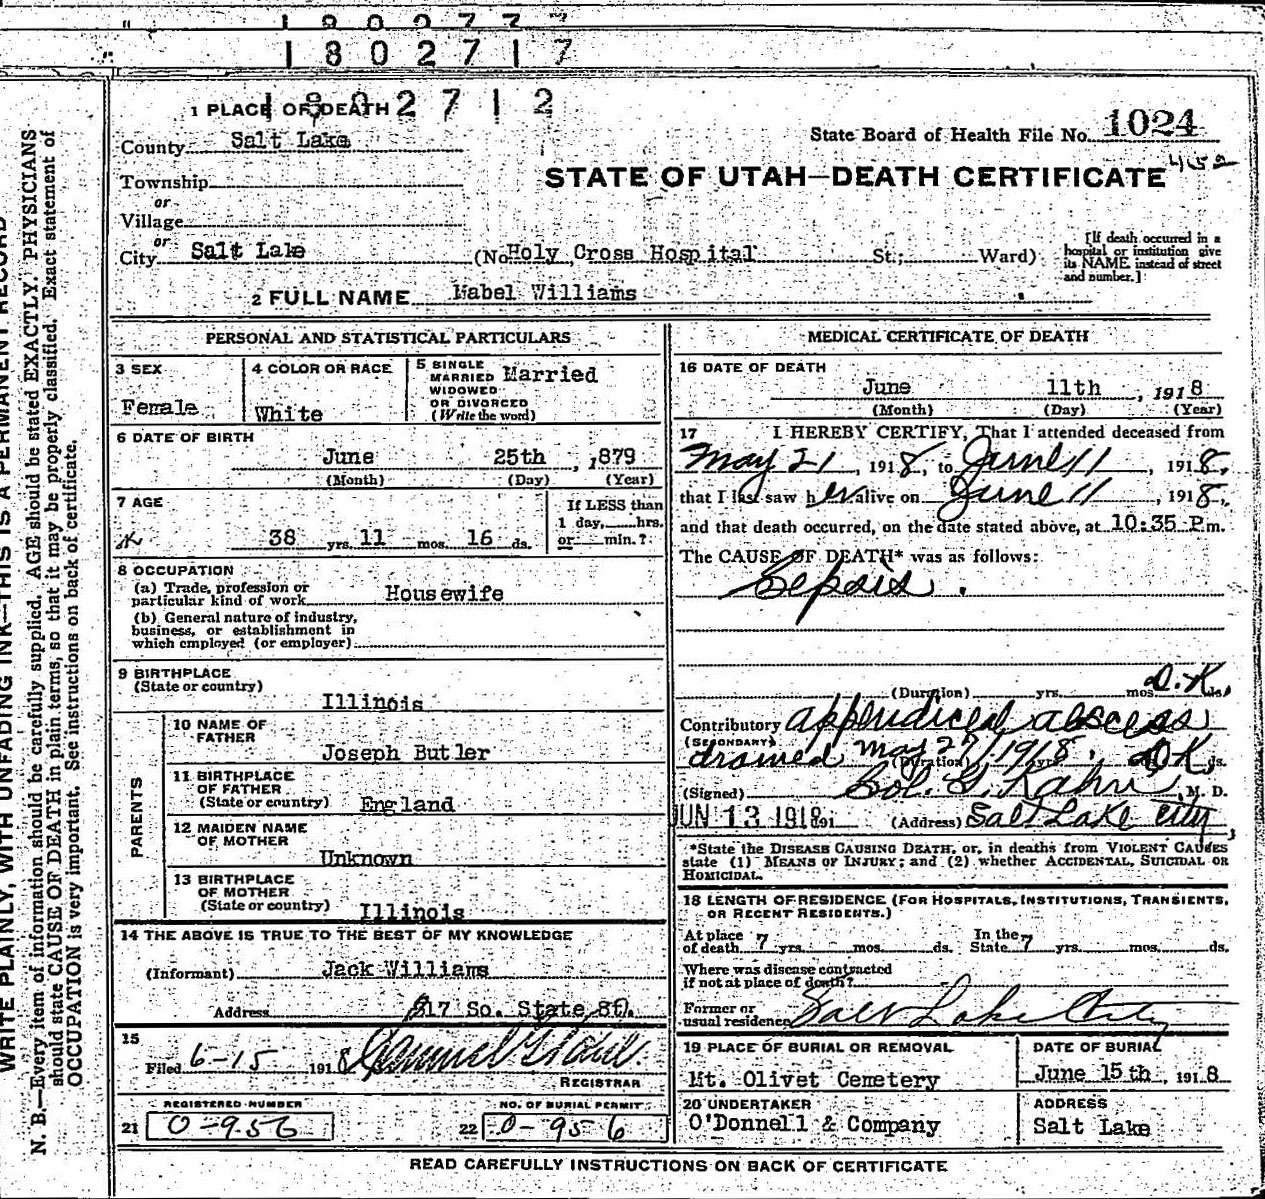 1802717
1802712
1 PLACE OF DEATH
County Salt Lake
State Board of Health File No. 1024
452
Township
or
Village
or
City Salt Lake
STATE OF UTAH—DEATH CERTIFICATE
(No Holy Cross Hospital St.; Ward)
[If death occurred in a hospital or institution give its NAME instead of street and number.]
2 FULL NAME Mabel Williams
PERSONAL AND STATISTICAL PARTICULARS
3 SEX
Female
4 COLOR OR RACE
White
5 SINGLE
MARRIED
WIDOWED
OR DIVORCED
(Write the word)
Married
6 DATE OF BIRTH
June 25th, 1879
(Month) (Day) (Year)
7 AGE
38 yrs. 11 mos. 16 ds.
If LESS than
1 day, hrs.
or min.?
8 OCCUPATION
(a) Trade, profession or
particular kind of work Housewife
(b) General nature of industry,
business, or establishment in
which employed (or employer)
9 BIRTHPLACE
(State or country)
Illinois
PARENTS
10 NAME OF
FATHER
Joseph Butler
11 BIRTHPLACE
OF FATHER
(State or country) England
12 MAIDEN NAME
OF MOTHER
Unknown
13 BIRTHPLACE
OF MOTHER
(State or country) Illinois
14 THE ABOVE IS TRUE TO THE BEST OF MY KNOWLEDGE
(Informant) Jack Williams
Address 817 So. State St.
15
Filed 6-15 1918
REGISTRAR
REGISTERED NUMBER
21 0-956
NO. OF BURIAL PERMIT
22 0-956
MEDICAL CERTIFICATE OF DEATH
16 DATE OF DEATH
June 11th, 1918
(Month) (Day) (Year)
17 I HEREBY CERTIFY, That I attended deceased from
May 21, 1918, to June 11, 1918,
that I last saw her alive on June 11, 1918,
and that death occurred, on the date stated above, at 10:35 P.m.
The CAUSE OF DEATH* was as follows:
Sepsis.
(Duration) yrs. mos. D.K. ds.
Contributory appendiceal abscess
(SECONDARY)
drained May 27/1918. (Duration) yrs. DK ds.
(Signed) Sol. G. Kahn, M. D.
JUN 13 1918 191 (Address) Salt Lake City
*State the DISEASE CAUSING DEATH, or, in deaths from VIOLENT CAUSES
state (1) MEANS OF INJURY; and (2) whether ACCIDENTAL, SUICIDAL OR
HOMICIDAL.
18 LENGTH OF RESIDENCE (FOR HOSPITALS, INSTITUTIONS, TRANSIENTS,
OR RECENT RESIDENTS.)
At place
of death 7 yrs. mos. ds.
In the
State 7 yrs. mos. ds.
Where was disease contracted
if not at place of death?
Former or
usual residence Salt Lake City
19 PLACE OF BURIAL OR REMOVAL
Mt. Olivet Cemetery
DATE OF BURIAL
June 15th, 1918
20 UNDERTAKER
O'Donnell & Company
ADDRESS
Salt Lake
READ CAREFULLY INSTRUCTIONS ON BACK OF CERTIFICATE
WRITE PLAINLY, WITH UNFADING INK—THIS IS A PERMANENT RECORD
N. B.—Every item of information should be carefully supplied. AGE should be stated EXACTLY. PHYSICIANS
should state CAUSE OF DEATH in plain terms, so that it may be properly classified. Exact statement of
OCCUPATION is very important. See instructions on back of certificate.